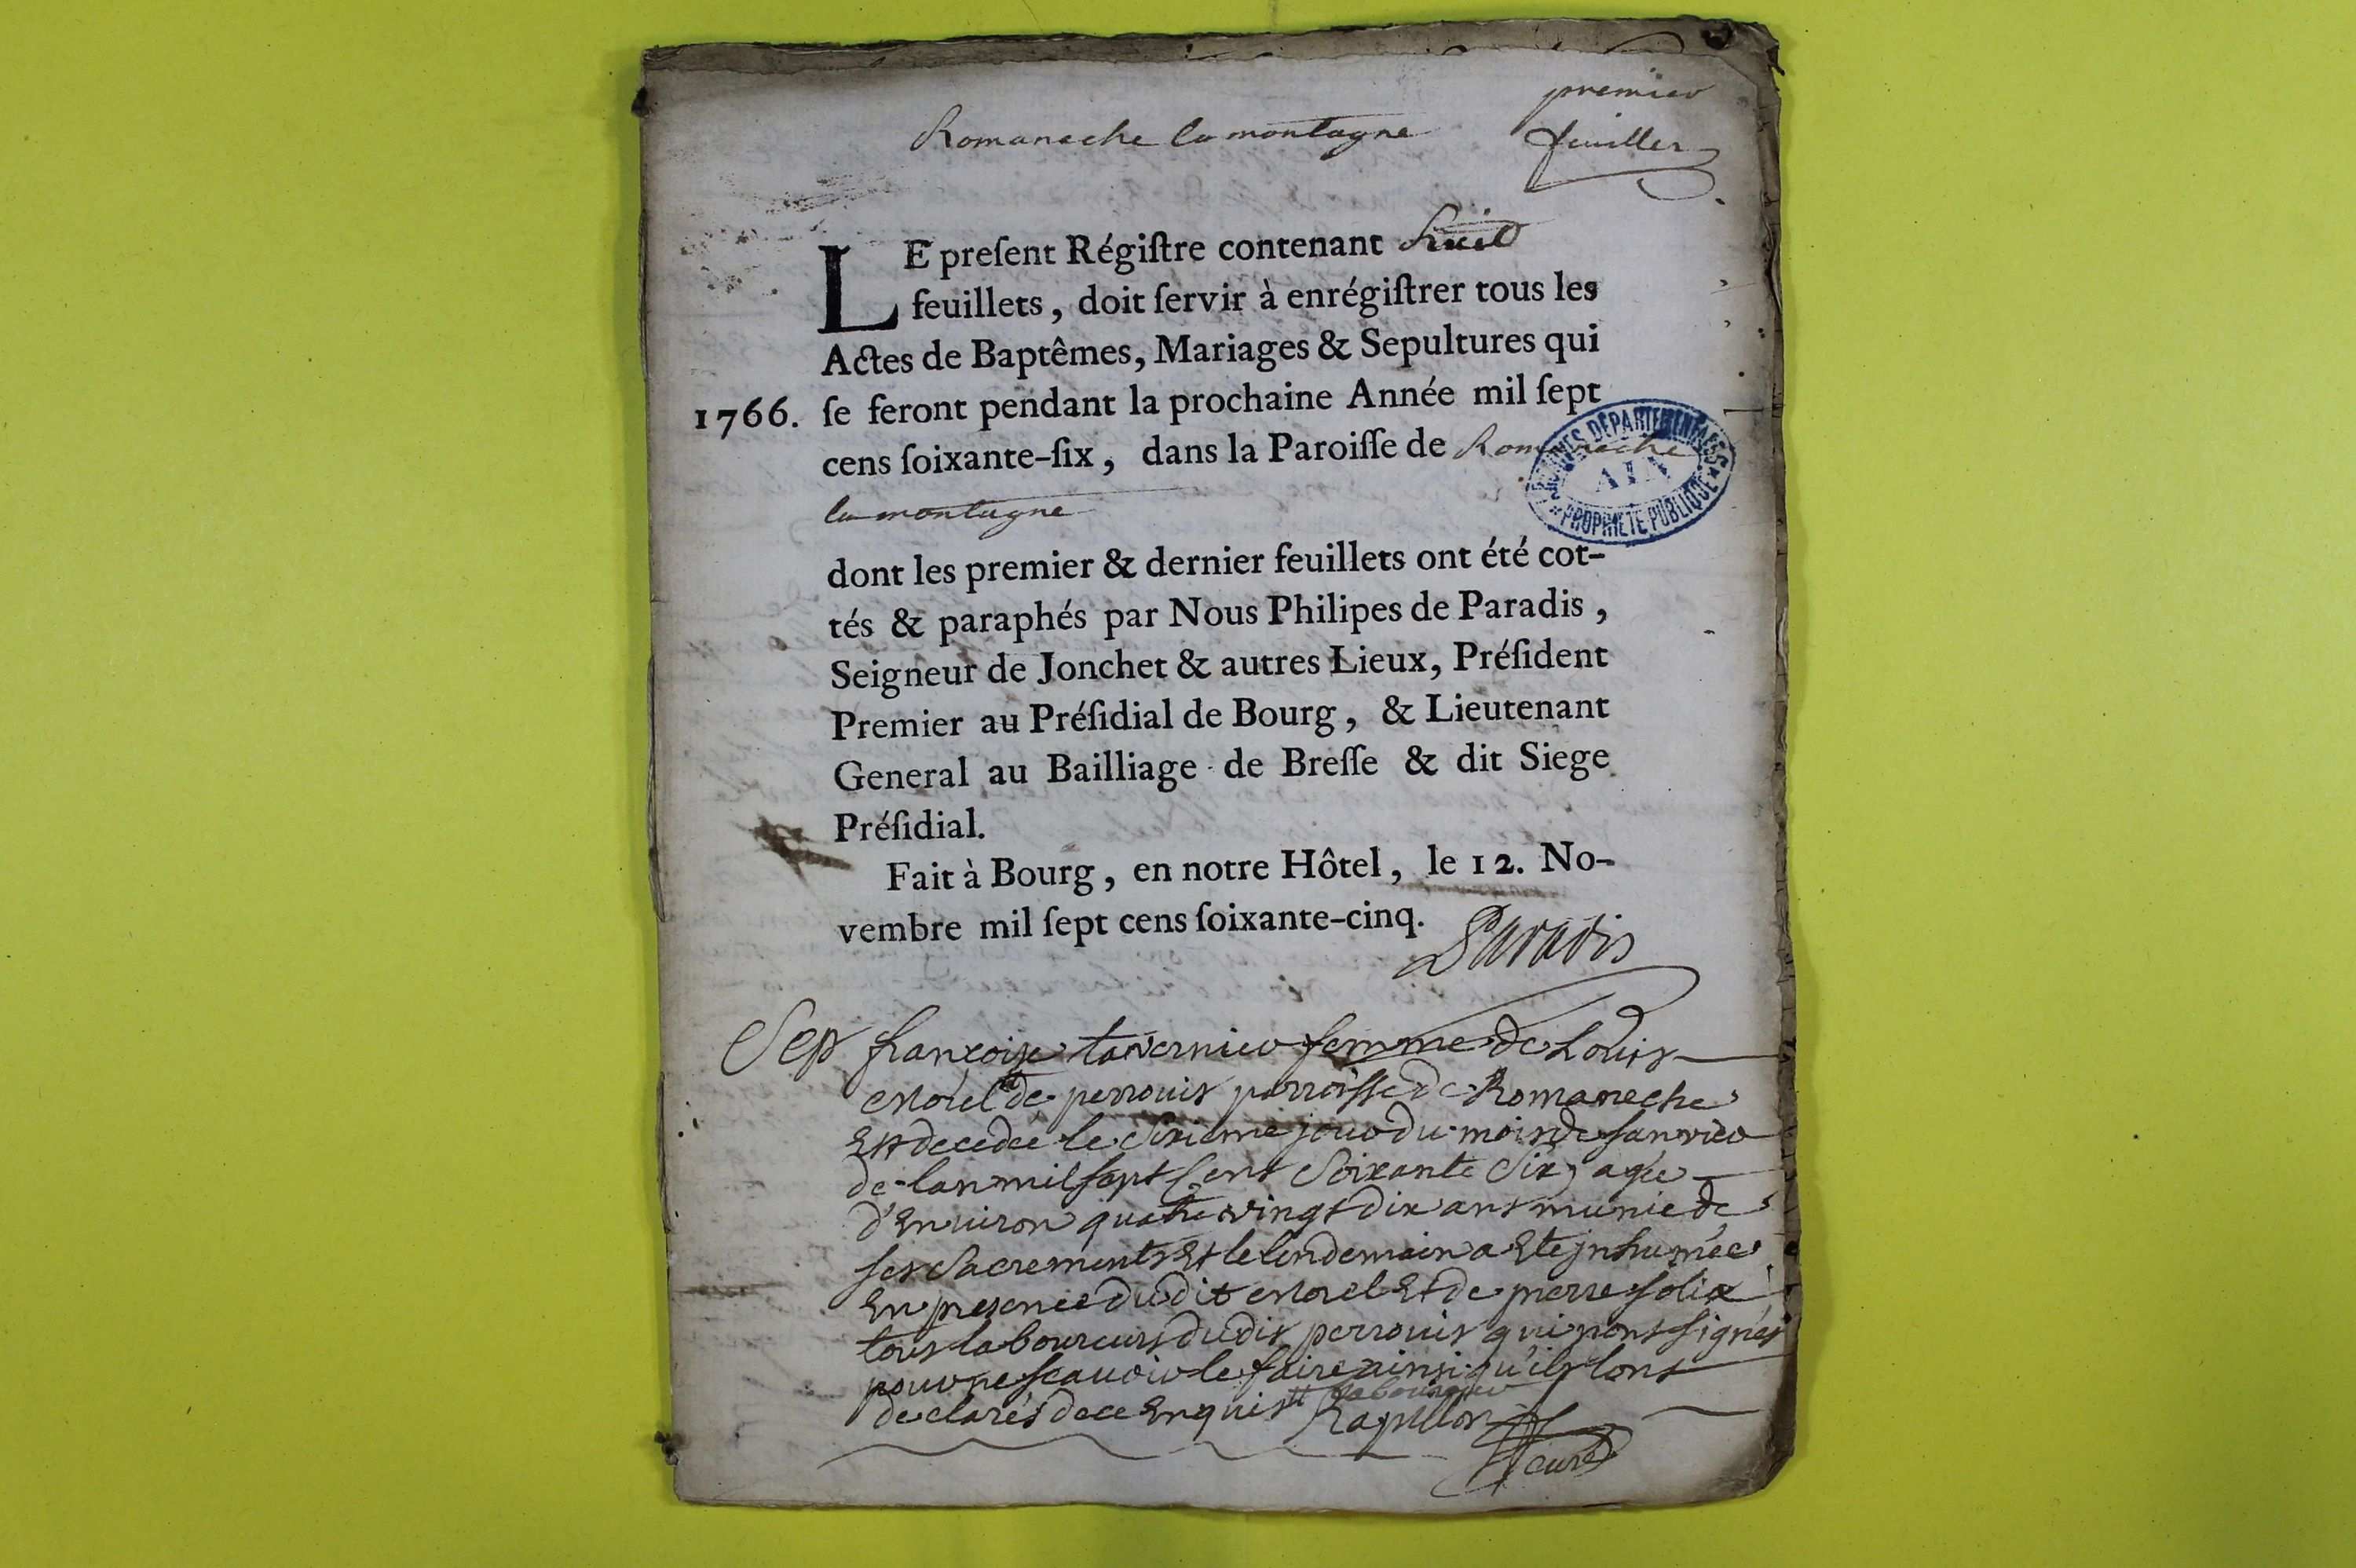 Romaneche la montagne
premier
feuillet
LE preſent Régiſtre contenant huit
feuillets, doit ſervir à enrégiſtrer tous les
Actes de Baptêmes, Mariages & Sepultures qui
1766. ſe feront pendant la prochaine Année mil ſept
cens ſoixante-ſix, dans la Paroiſſe de Romaneche
la montagne
ARCHIVES DÉPARTEMENTALES
AIN
PROPRIÉTÉ PUBLIQUE
dont les premier & dernier feuillets ont été cot-
tés & paraphés par Nous Philipes de Paradis,
Seigneur de Jonchet & autres Lieux, Préſident
Premier au Préſidial de Bourg, & Lieutenant
General au Bailliage de Breſſe & dit Siege
Préſidial.
Fait à Bourg, en notre Hôtel, le 12. No-
vembre mil ſept cens ſoixante-cinq.
Paradis
Sep françoise tavernier femme de Louis
Morel de perrouis parroisse de Romaneche
Est decedée le Sixieme jour du mois de Janvier
de lan mil sept Cent Soixante Six, agée
d'Environ quatre vingt dix ans munie de
ses Sacrements Et le lendemain a Eté jnhumée
En presence dudit Morel Et de pierre
tous laboureurs dudit perrouis qui n'ont signés
pour ne scavoir le faire ainsi qu'ils l'ont
declarés de ce Enquis Rapillon
curé